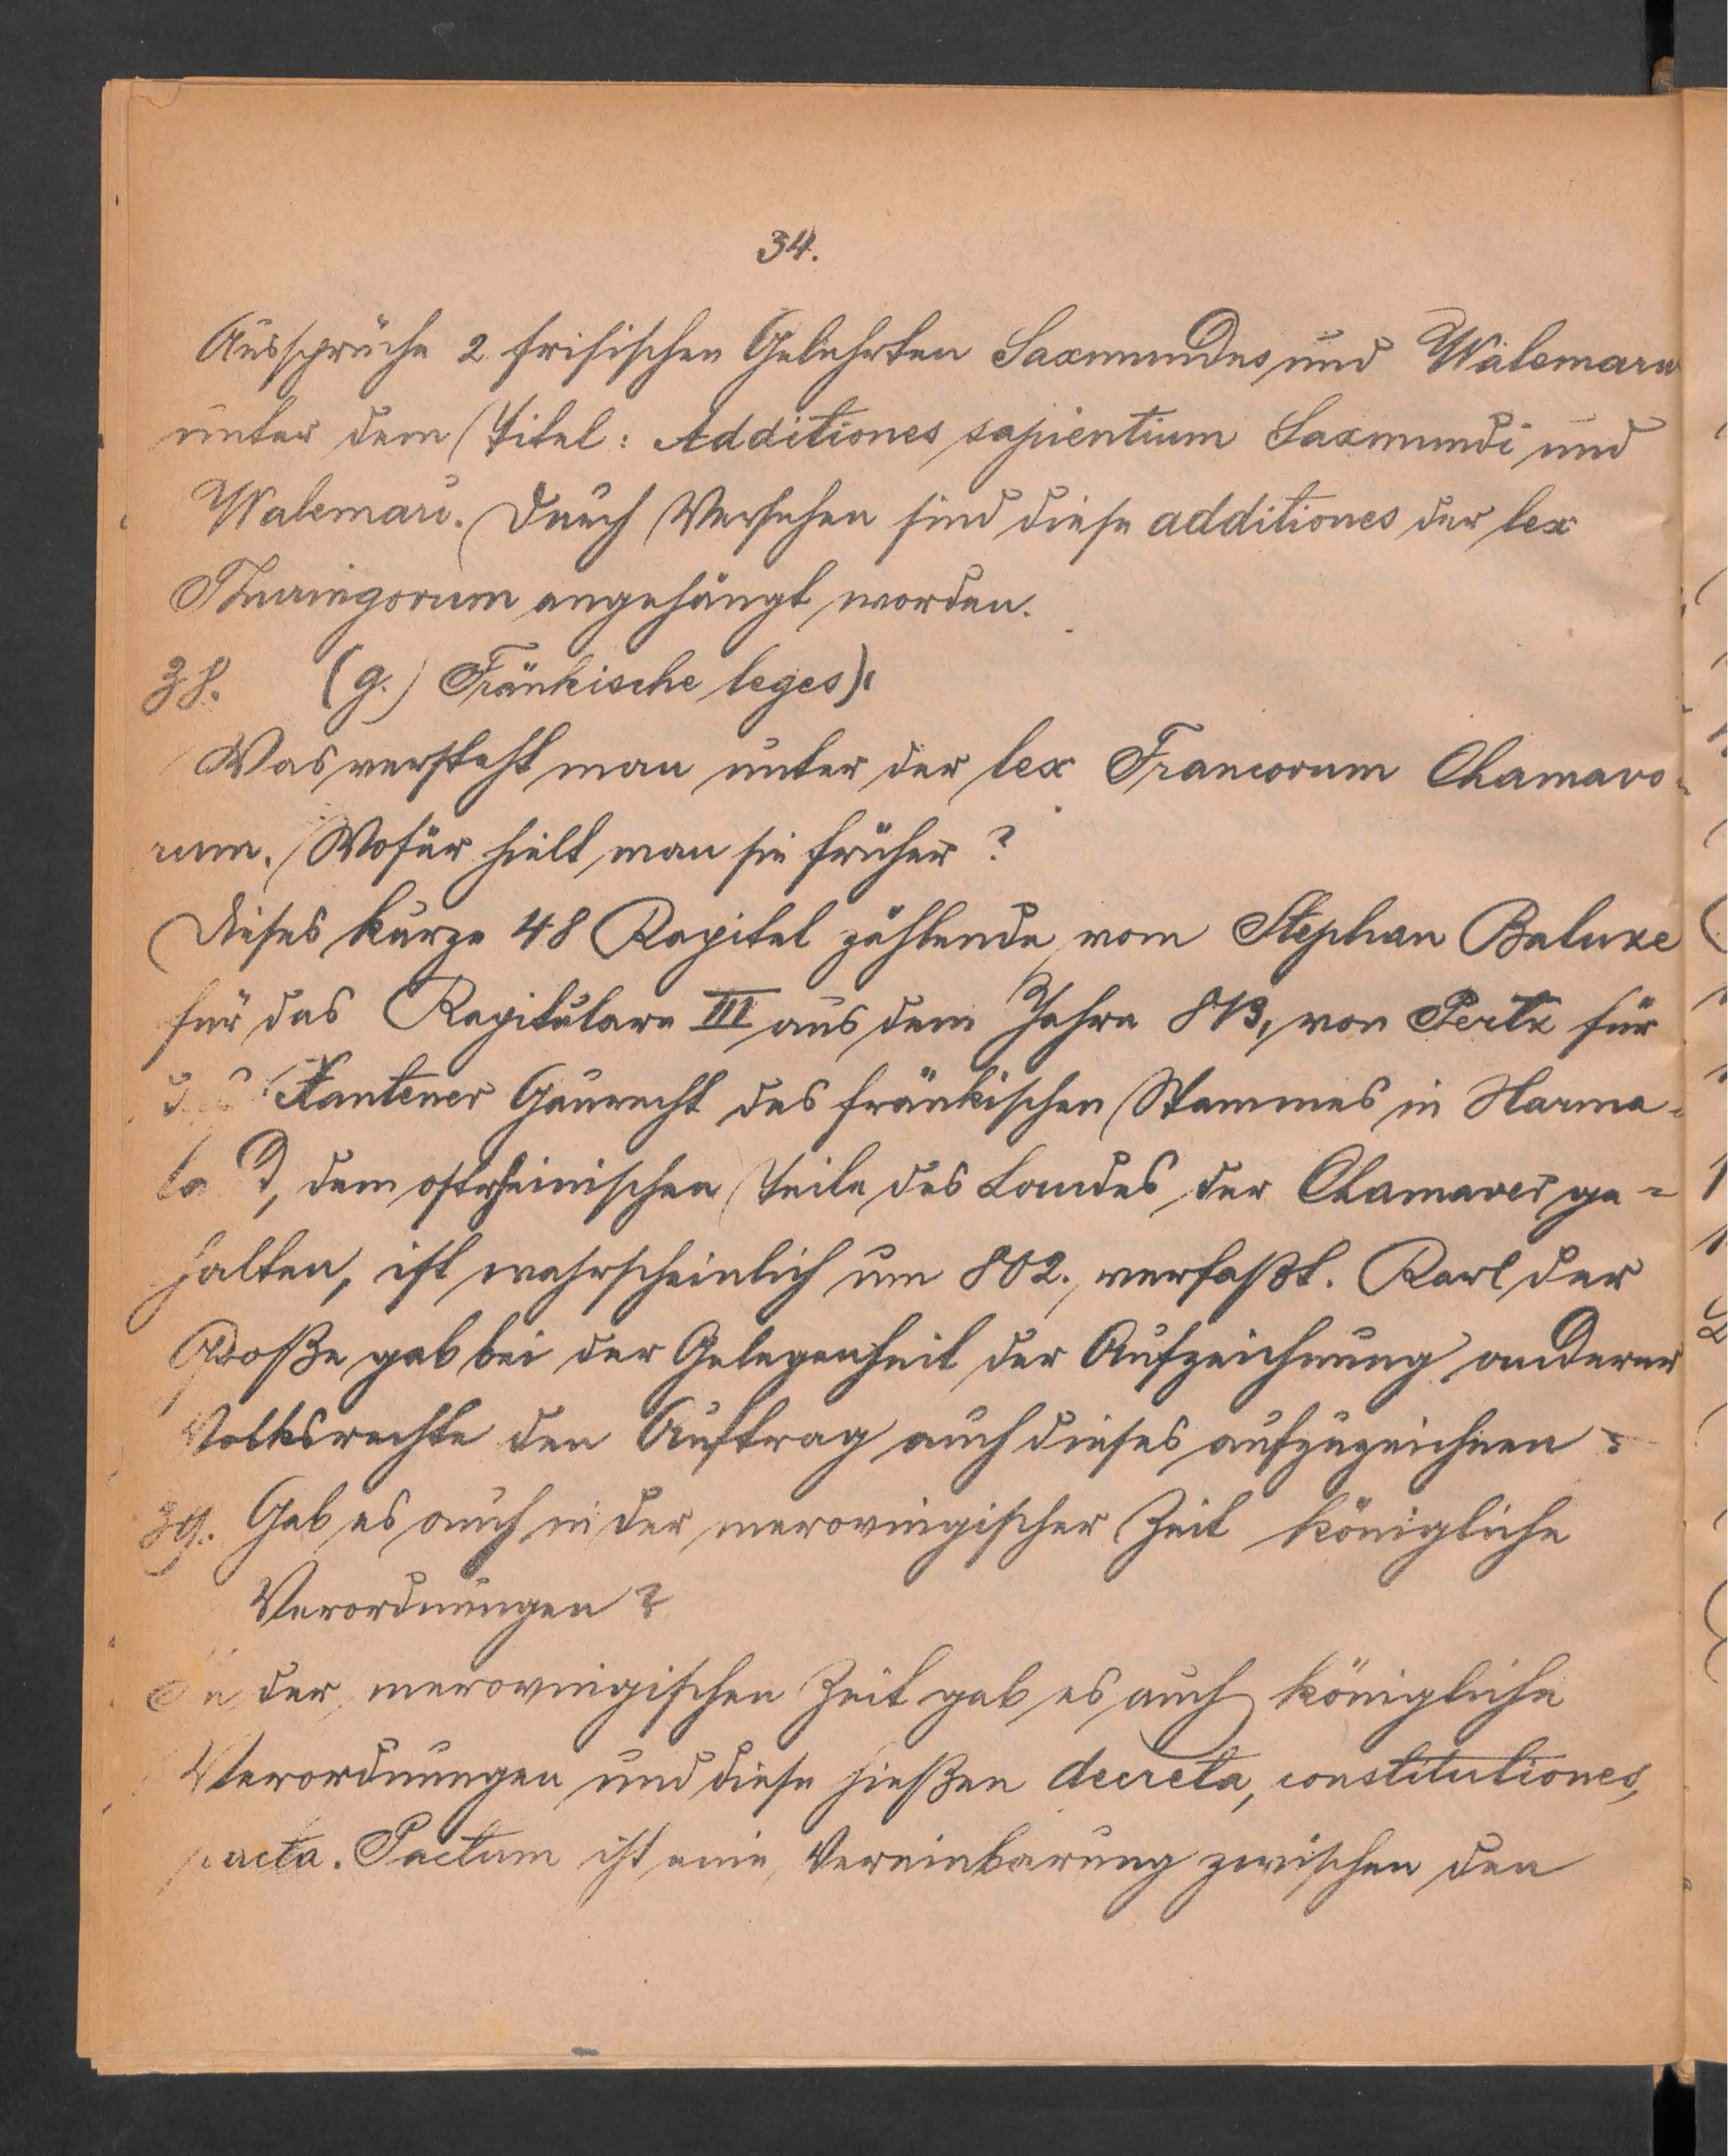 34.
Aussprüche 2 frisischen Gelehrten Saxmundus und Walemarus
unter dem Titel: Additiones sapientium Saxmundi und
Walemari. Durch Versehen sind diese additiones der lex
Thuringorum angehängt worden.
38. (g.) Fränkische leges).
Was versteht man unter der lex Francorum Chamavo-
rum. Wofür hielt man sie früher?
Dieses kurze 48 Kapitel zählende vom Stephan Baluze
für das Kapitulare III aus dem Jahre 813, von Pertz für
das Xantener Gaurecht des fränkischen Stammes in Hama-
la d, dem ostrheinischen Teile des Landes der Chamaver ge-
halten, ist wahrscheinlich um 802. verfaßt. Karl der
Große gab bei der Gelegenheit der Aufzeichnung anderer
Volksrechte den Auftrag auch dieses aufzuzeichnen.
39. Gab es auch in der merovingischer Zeit königliche
Verordnungen?
In der merovingischen Zeit gab es auch königliche
Verordnungen und diese hießen decreta, constitutiones,
pacta. Pactum ist eine Vereinbarung zwischen den